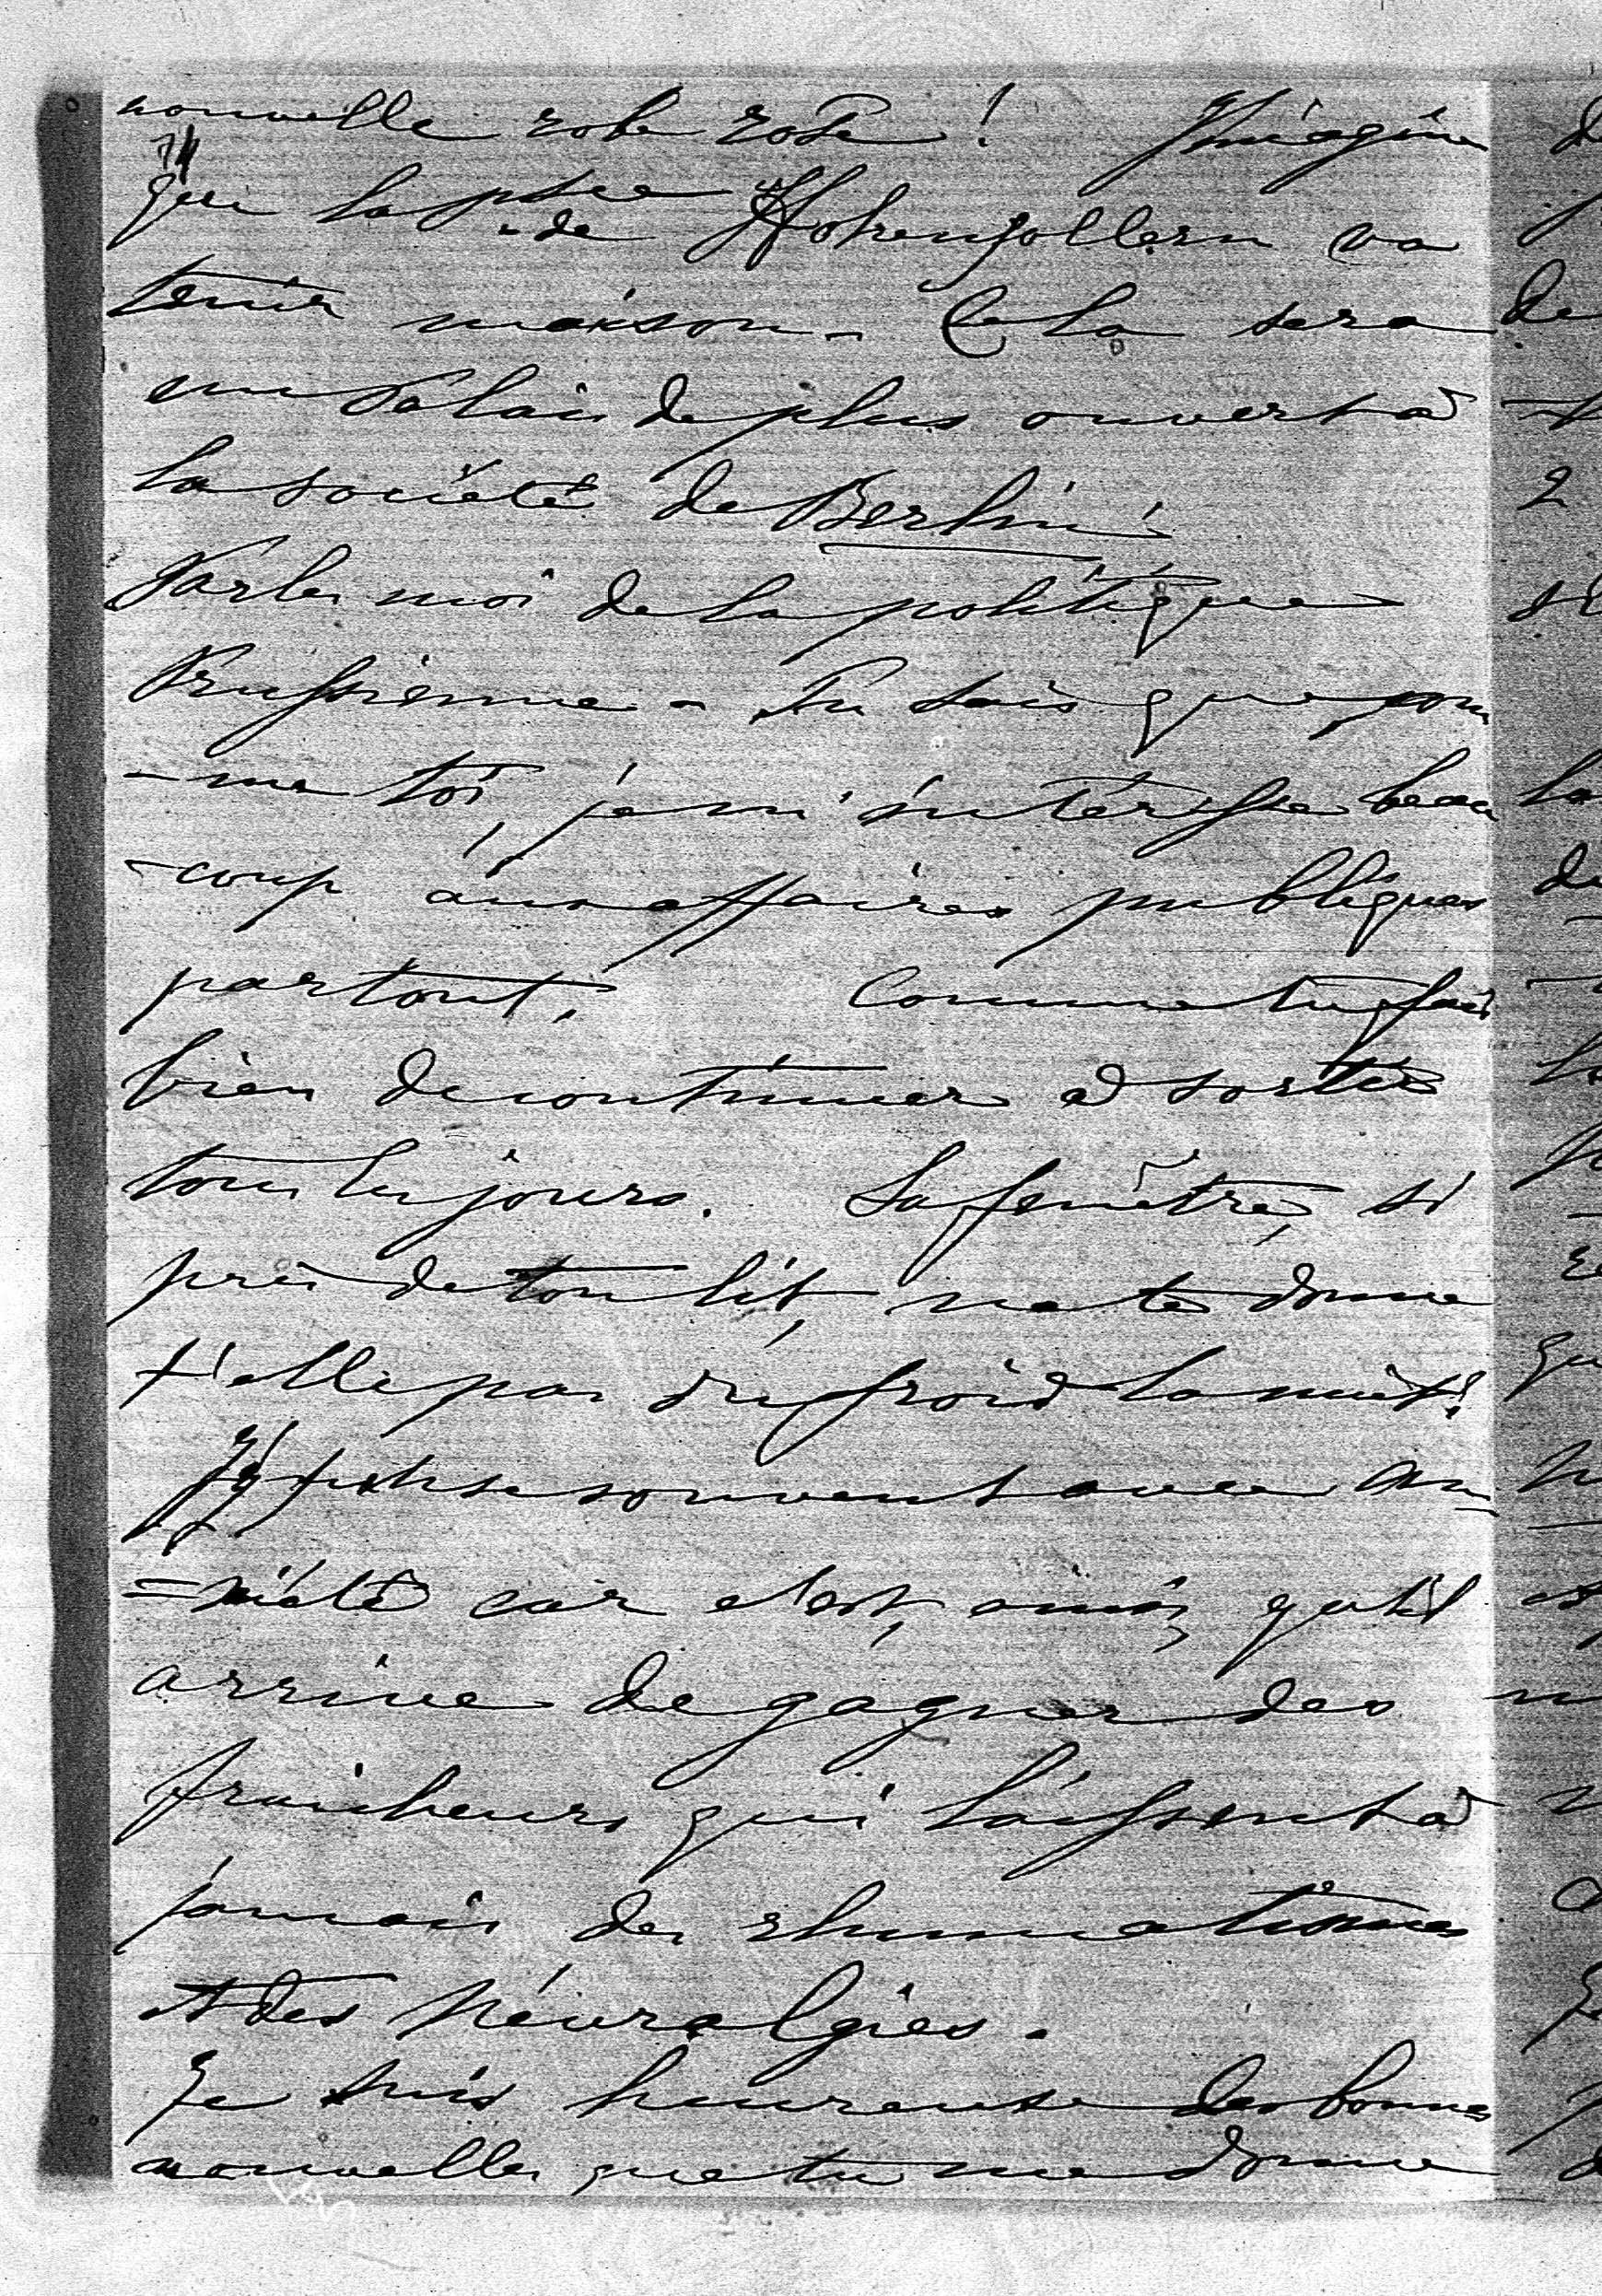 nouvelle robe rose! J'imagine
que la psse de Hohenzollern va
tenir maison. Cela sera
un salon de plus ouvert à
la société de Berlin.
Parles moi de la politique
Prussienne. Tu sais que, com
-me toi, je m'intéresse beau
-coup aux affaires publiques
partout. Comme tu fais
bien de continuer à sortir
tous les jours. La fenêtre, si
près de ton lit, ne te donne
t'elle pas du froid la nuit?
J'y pense souvent avec an
=xiété car c'est, ainsi, qu'il
arrive de gagner des
fraicheurs qui laissent à
jamais des rhumatismes
et des névralgies.
Je suis heureuse des bonnes
nouvelles que tu me donne